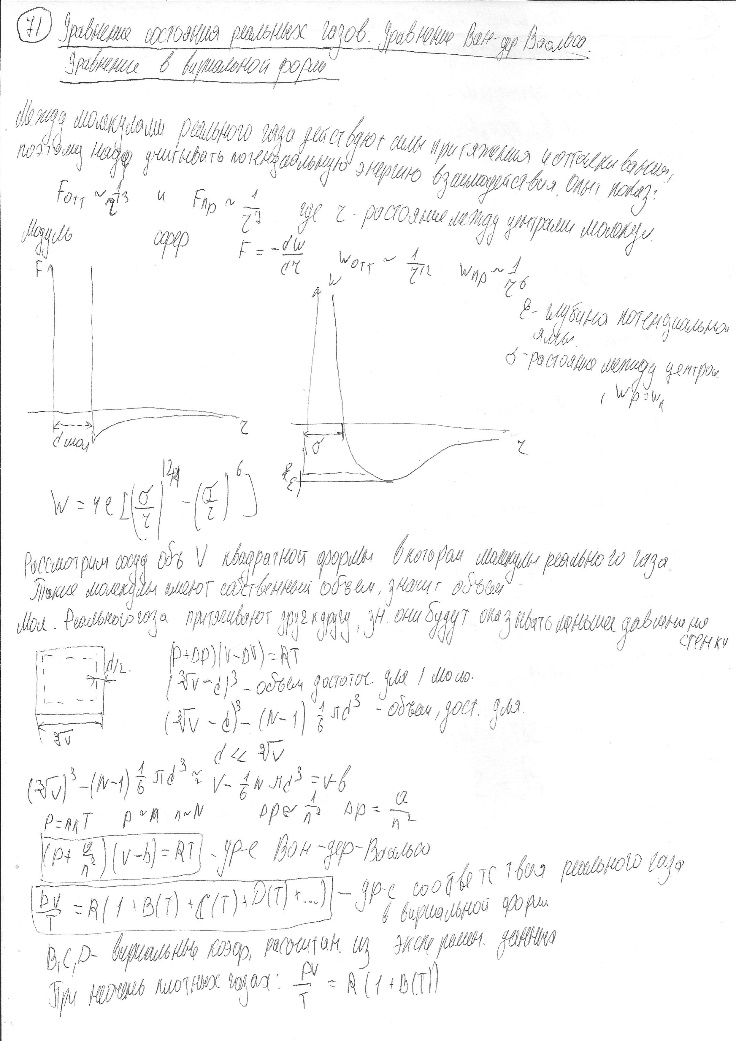 71 Уравнение состояния реальных газов. Уравнение Ван-дер Ваальса.
Уравнение в вириальной форме
Между молекулами реального газа действуют силы притяжения и отталкивания,
поэтому надо учитывать потенциальную энергию взаимодействия. Опыт показ:
Fотт ~ 1/r¹³ и Fпр ~ 1/r⁷ где r - растояние между центрами молекул.
Модуль сфер F = -dW/dr Wотт ~ 1/r¹² Wпр ~ 1/r⁶
F W
ε - глубина потенциальной
ямы.
σ - растояние между центром
, Wр = W
d мол r σ r
ε
W = 4ε[(σ/r)¹² - (σ/r)⁶]
Рассмотрим сосуд объ V квадратной формы в котором молекулы реального газа.
Такие молекулы имеют собственный объем, значит объем -
Мол. Реального газа притягивают друг к другу, зн. они будут оказывать меньше давления на
стенки
d/2 (P+ΔP)(V-ΔV)=RT
(∛V-d)³ - объем достаточ. для 1 моле.
(∛V-d)³ - (N-1) 1/6 πd³ - объем, дост. для.
∛V d << ∛V
(∛V)³ - (N-1) 1/6 πd³ ≈ V - 1/6 N πd³ = V-b
P=nkT P~n n~N ΔP~1/n² ΔP = a/n²
(P + a/n²)(V-b)=RT - ур-е Ван-дер-Ваальса
PV/T = R(1+B(T)+C(T)+D(T)+...) - ур-е соответствия реального газа
в вириальной форм
B,C,D - вириальные коэф, расчитан. из экспериммен. данных
При неочень плотных газах: PV/T = R(1+B(T))